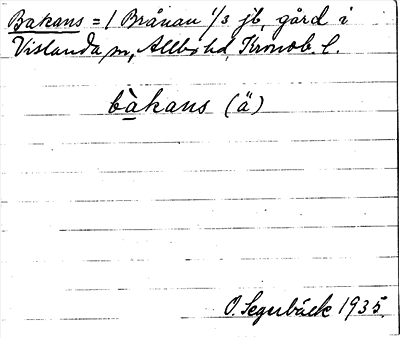 Bakans = 1 Brånan 1/3 jb, gård i
Vislanda sn, Allbo hd, Kronob. l.
bàkans (ä)
O. Segerbäck 1935.